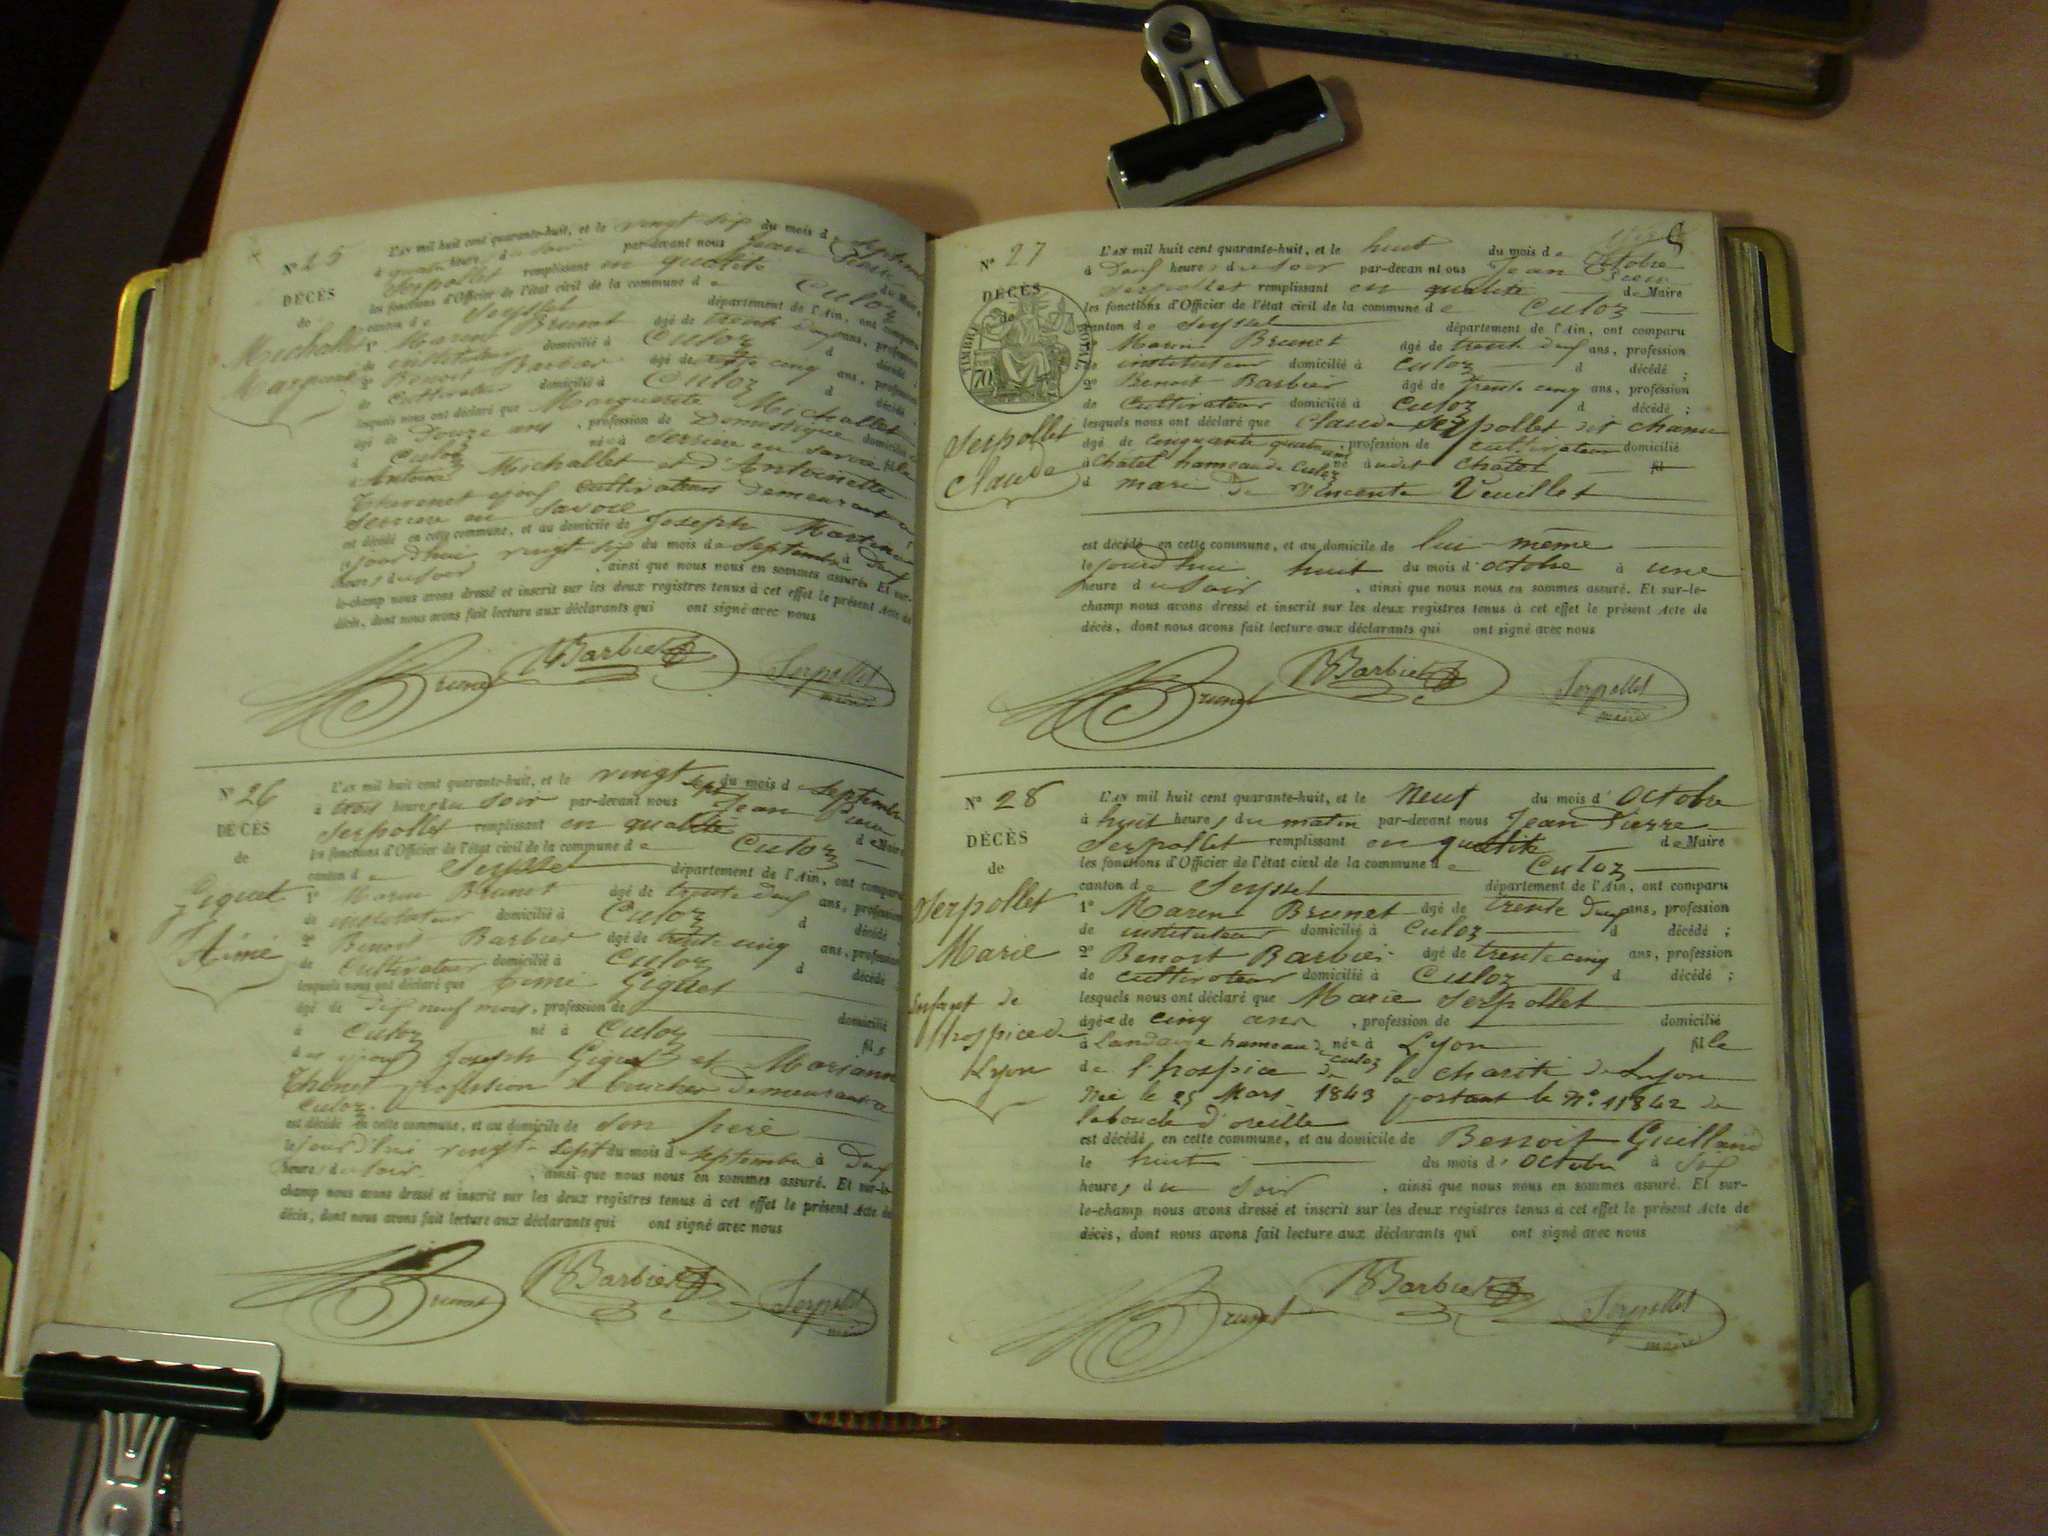 N° 25
DÉCÈS
de
Michallet
Marguerite
L'AN mil huit cent quarante-huit, et le vingt six du mois de Septembre
à quatre heures du soir par-devant nous Jean Pierre
Serpollet remplissant en qualité de Maire
les fonctions d'Officier de l'état civil de la commune de Culoz
canton de Seyssel département de l'Ain, ont comparu
1° Marin Brunet âgé de trente deux ans, profession
de instituteur domicilié à Culoz d décédé ;
2° Benoit Barbier âgé de trente cinq ans, profession
de cultivateur domicilié à Culoz d décédé ;
lesquels nous ont déclaré que Marguerite Michallet
âgé de Douze ans , profession de Domestique domicilié
à Culoz née à Serriere en Savoie fille
à Antoine Michallet et d'Antoinette
Thevenet époux cultivateurs demeurant à
Serriere en Savoie
est décédé en cette commune, et au domicile de Joseph Martin
le jourd'hui vingt six du mois de Septembre à deux
heures du soir , ainsi que nous nous en sommes assuré. Et sur-
le-champ nous avons dressé et inscrit sur les deux registres tenus à cet effet le présent Acte de
décès, dont nous avons fait lecture aux déclarants qui ont signé avec nous
Brunet BBarbier Serpollet
maire
N° 26
DÉCÈS
de
Giguet
Aime
L'AN mil huit cent quarante-huit, et le vingt sept du mois de Septembre
à trois heures du soir par-devant nous Jean Pierre
Serpollet remplissant en qualité de Maire
les fonctions d'Officier de l'état civil de la commune de Culoz
canton de Seyssel département de l'Ain, ont comparu
1° Marin Brunet âgé de trente deux ans, profession
de instituteur domicilié à Culoz d décédé ;
2° Benoit Barbier âgé de trente cinq ans, profession
de Cultivateur domicilié à Culoz d décédé ;
lesquels nous ont déclaré que Aime Giguet
âgé de dix neuf mois , profession de domicilié
à Culoz né à Culoz fils
des époux Joseph Giguet et Marianne
Thenet profession de boucher demeurant à
Culoz.
est décédé en cette commune, et au domicile de son père
le jourd'hui vingt sept du mois de septembre à deux
heures du soir , ainsi que nous nous en sommes assuré. Et sur-le-
champ nous avons dressé et inscrit sur les deux registres tenus à cet effet le présent Acte de
décès, dont nous avons fait lecture aux déclarants qui ont signé avec nous
Brunet BBarbier Serpollet
maire
N° 27
DÉCÈS
de
TIMBRE ROYAL
70
Serpollet
Claude
L'AN mil huit cent quarante-huit, et le huit du mois de Octobre
à Deux heures du soir par-devan nt ous Jean Pierre
Serpollet remplissant en qualité de Maire
les fonctions d'Officier de l'état civil de la commune de Culoz
canton de Seyssel département de l'Ain, ont comparu
1° Marin Brunet âgé de trente deux ans, profession
de instituteur domicilié à Culoz d décédé ;
2° Benoit Barbier âgé de trente cinq ans, profession
de Cultivateur domicilié à Culoz d décédé ;
lesquels nous ont déclaré que Claude Serpollet dit chanu
âgé de cinquante quatre ans , profession de cultivateur domicilié
à Châtel hameau de Culoz né à udit Chatel fil
à mari de Vincente Veuillet
est décédé en cette commune, et au domicile de lui-même
le jourd'hui huit du mois d'octobre à une
heure du soir , ainsi que nous nous en sommes assuré. Et sur-le-
champ nous avons dressé et inscrit sur les deux registres tenus à cet effet le présent Acte de
décès, dont nous avons fait lecture aux déclarants qui ont signé avec nous
Brunet BBarbier Serpollet
maire
N° 28
DÉCÈS
de
Serpollet
Marie
Enfant de
l'hospice de
Lyon
L'AN mil huit cent quarante-huit, et le Neuf du mois d'Octobre
à huit heures du matin par-devant nous Jean Pierre
Serpollet remplissant en qualité de Maire
les fonctions d'Officier de l'état civil de la commune de Culoz
canton de Seyssel département de l'Ain, ont comparu
1° Marin Brunet âgé de trente deux ans, profession
de instituteur domicilié à Culoz d décédé ;
2° Benoit Barbier âgé de trente cinq ans, profession
de cultivateur domicilié à Culoz d décédé ;
lesquels nous ont déclaré que Marie Serpollet
âgée de cinq ans , profession de domicilié
à Landaize hameau de culoz née à Lyon fille
de l'hospice de la charité de Lyon
Née le 25 Mars 1843 portant le N°. 11842 de
la boucle d'oreille
est décédé en cette commune, et au domicile de Benoit Guilland
le huit du mois d'Octobre à six
heures du soir , ainsi que nous nous en sommes assuré. Et sur-
le-champ nous avons dressé et inscrit sur les deux registres tenus à cet effet le présent Acte de
décès, dont nous avons fait lecture aux déclarants qui ont signé avec nous
Brunet BBarbier Serpollet
maire